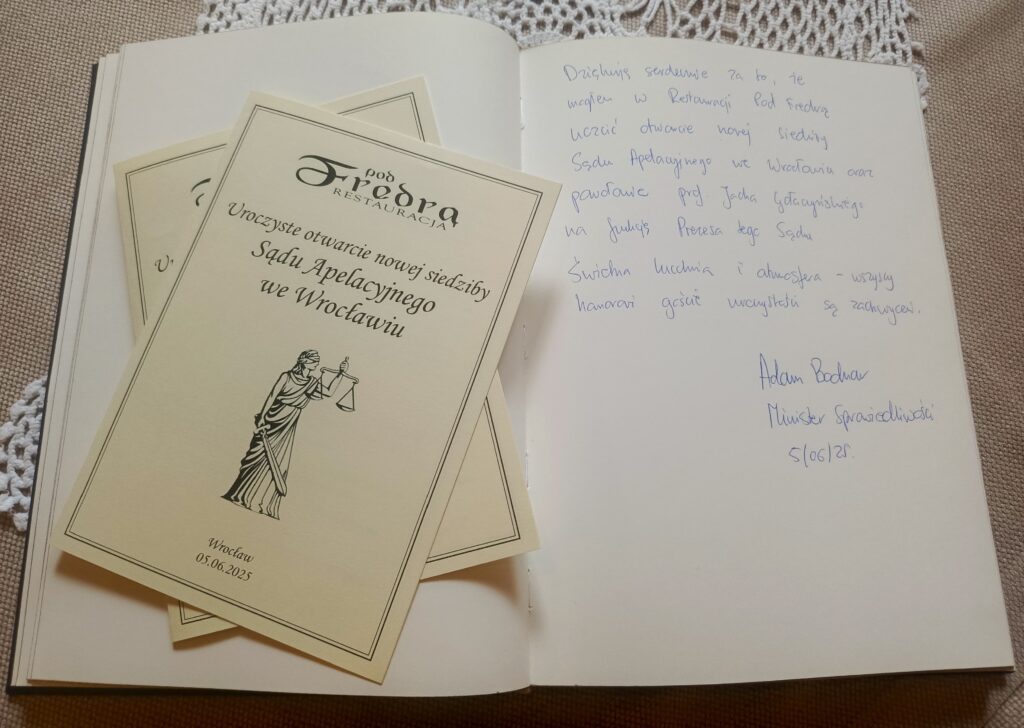 pod
Fredrą
RESTAURACJA
Uroczyste otwarcie nowej siedziby
Sądu Apelacyjnego
we Wrocławiu
Wrocław
05.06.2025
Dziękuję serdecznie za to, że
mogłem w Restauracji Pod Fredrą
uczcić otwarcie nowej siedziby
Sądu Apelacyjnego we Wrocławiu oraz
powołanie prof. Jacka Gołaczyńskiego
na funkcję Prezesa tego Sądu
Świetna kuchnia i atmosfera – wszyscy
goście uroczystości są zachwyceni.
Adam Bodnar
Minister Sprawiedliwości
5/06/25.